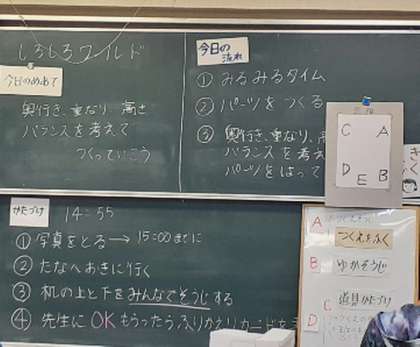 しろしろワールド
今日のめあて
奥行き、重なり、高さ
バランスを考えて
つくっていこう
今日の流れ
① みるみるタイム
② パーツをつくる
③ 奥行き、重なり、高
バランスを考え
パーツをはって
C A
D E B
かたづけ 14:55
① 写真をとる→ 15:00までに
② たなへおきに行く
③ 机の上と下をみんなでそうじする
④ 先生にOKもらったらふりかえりカードを
A つくえをふく
B ゆかそうじ
C 道具かたづけ
D